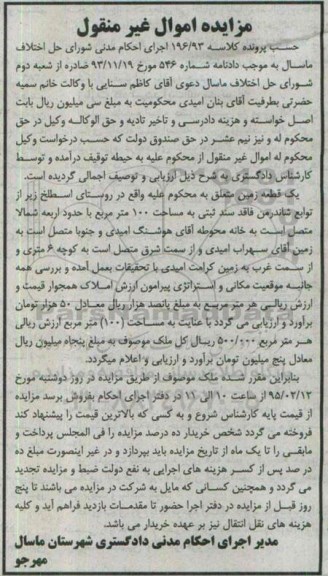 مزایده اموال غیر منقول
حسب پرونده کلاسه ۱۹۶/۹۳ اجرای احکام مدنی شورای حل اختلاف
ماسال به موجب دادنامه شماره ۵۴۶ مورخ ۹۳/۱۱/۱۹ صادره از شعبه دوم
شورای حل اختلاف ماسال دعوی آقای کاظم سنایی با وکالت خانم سمیه
حضرتی بطرفیت آقای بنان امیدی محکومیت به مبلغ سی میلیون ریال بابت
اصل خواسته و هزینه دادرسی و تاخیر تادیه و حق الوکاله وکیل در حق
محکوم له و نیز نیم عشر در حق صندوق دولت که حسب درخواست وکیل
محکوم له اموال غیر منقول از محکوم علیه به حیطه توقیف درآمده و توسط
کارشناس دادگستری به شرح ذیل ارزیابی و توصیف اجمالی گردیده است.
یک قطعه زمین متعلق به محکوم علیه واقع در روستای اسطلخ زیر از
توابع شاندرمن فاقد سند ثبتی به مساحت ۱۰۰ متر مربع با حدود اربعه شمالا
متصل است به خانه محوطه آقای هوشنگ امیدی و جنوبا متصل است به
زمین آقای سهراب امیدی و از سمت شرق متصل است به کوچه ۶ متری و
از سمت غرب به زمین کرامت امیدی با تحقیقات بعمل آمده و بررسی همه
جانبه موقعیت مکانی و استراتژی پیرامون ارزش املاک همجوار قیمت و
ارزش ریالی هر متر مربع به مبلغ پانصد هزار ریال معادل ۵۰ هزار تومان
برآورد و ارزیابی می گردد با عنایت به مساحت (۱۰۰) متر مربع ارزش ریالی
هر متر مربع ۵۰۰/۰۰۰ ریال کل ملک موصوف به مبلغ پنجاه میلیون ریال
معادل پنج میلیون تومان برآورد و ارزیابی و اعلام میگردد.
بنابراین مقرر شده ملک موصوف از طریق مزایده در روز دوشنبه مورخ
۹۵/۰۲/۱۳ از ساعت ۱۰ الی ۱۱ در دفتر اجرای احکام بفروش برسد مزایده
از قیمت پایه کارشناس شروع و به کسی که بالاترین قیمت را پیشنهاد کند
فروخته می گردد شخص خریدار ده درصد مزایده را فی المجلس پرداخت و
مابقی را تا یک ماه از تاریخ مزایده باید بپردازد و در غیر اینصورت مبلغ ده
در صد پس از کسر هزینه های اجرایی به نفع دولت ضبط و مزایده تجدید
می گردد و همچنین کسانی که مایل به شرکت در مزایده می باشند تا پنج
روز قبل از مزایده در دفتر اجرا حضور تا مقدمات بازدید فراهم آید و کلیه
هزینه های نقل انتقال نیز بر عهده خریدار می باشد.
مدیر اجرای احکام مدنی دادگستری شهرستان ماسال
مهرجو